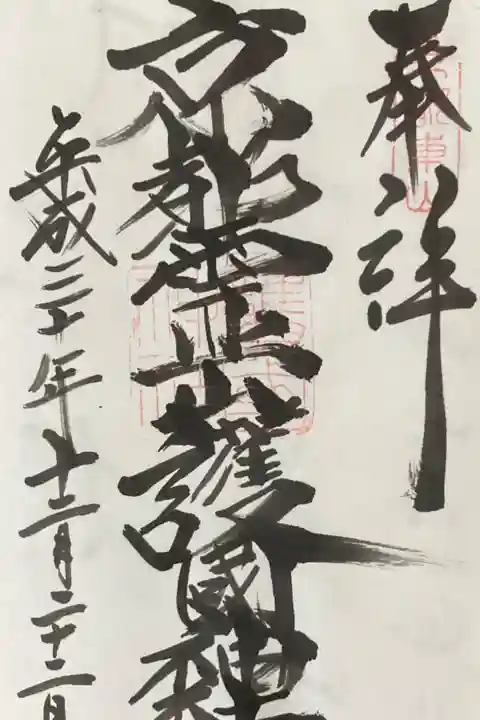 奉拝
京都霊山護國神社
平成三十年十二月二十二日